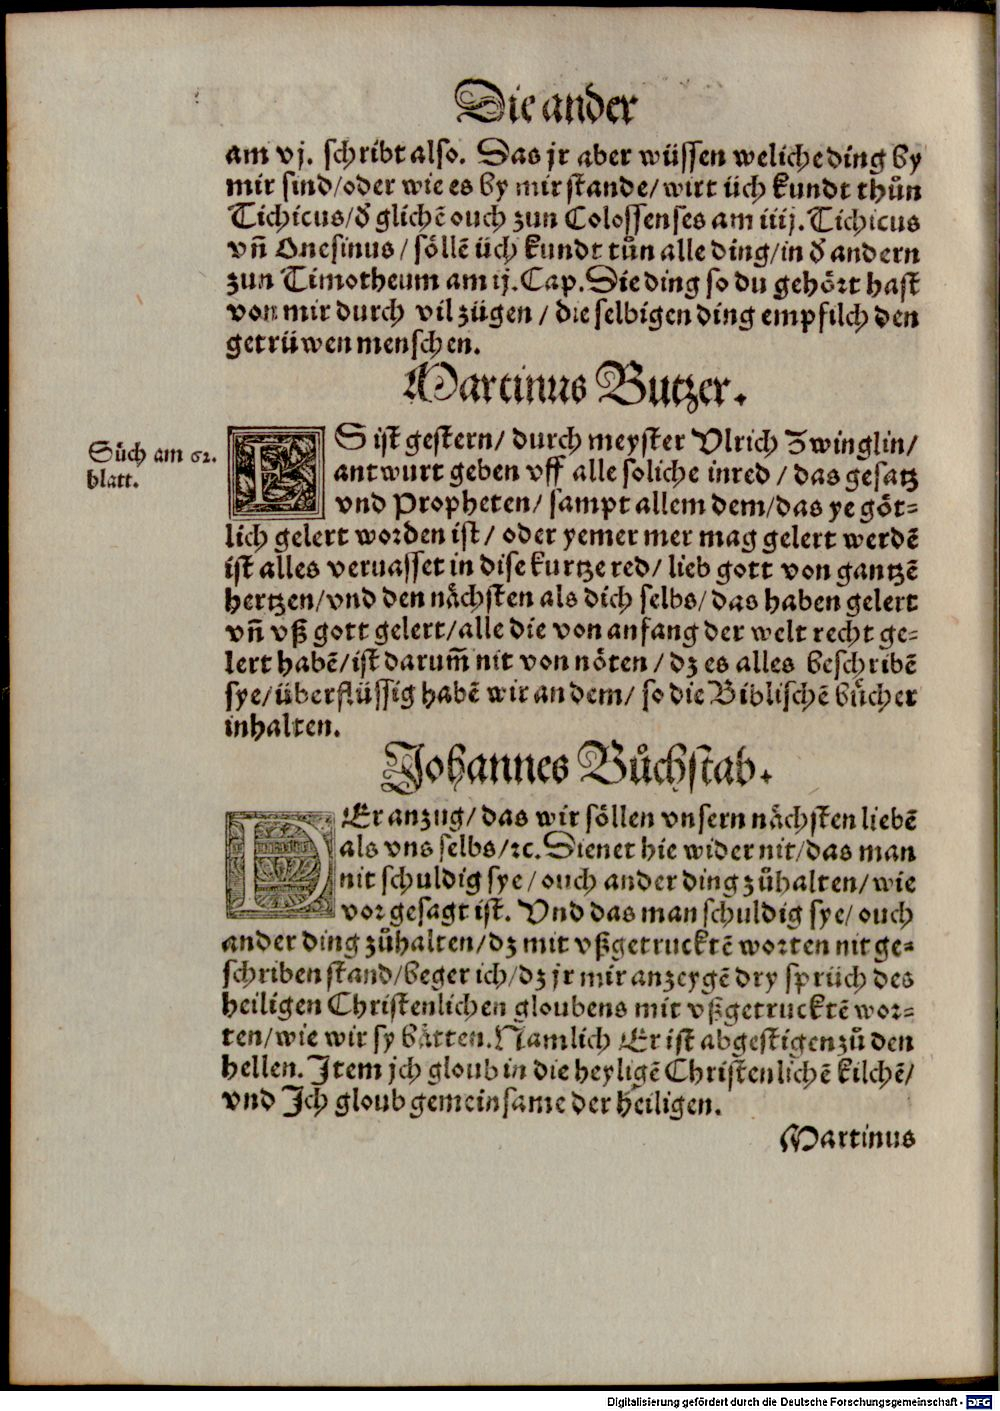 Die ander
am vj. schribt also. Das jr aber wüssen weliche ding by
mir sind/oder wie es by mir stande/ wirt üch kundt thůn
Tichicus/ď glichẽ ouch zun Colossenses am iiij. Tichicus
vñ Onesinus/ söllẽ üch kundt tůn alle ding/in ď andern
zun Timotheum am ij. Cap. Die ding so du gehört hast
von mir durch vil zügen / die selbigen ding empfilch den
getrüwen menschen.
Martinus Butzer.
Sůch am 62.
blatt.
ES ist gestern/ durch meyster Vlrich Zwinglin/
antwurt geben vff alle soliche inred / das gesatz
vnd Propheten/ sampt allem dem/das ye göt⸗
lich gelert worden ist/ oder yemer mer mag gelert werdẽ
ist alles veruasset in dise kurtze red/ lieb gott von gantzẽ
hertzen/vnd den nächsten als dich selbs/ das haben gelert
vñ vß gott gelert/alle die von anfang der welt recht ge⸗
lert habẽ/ist darum̃ nit von nöten / dz es alles beschribẽ
sye/überflüssig habẽ wir an dem/ so die Biblischẽ bůcher
inhalten.
Johannes Bůchstab.
DEr anzug/ das wir söllen vnsern nächsten liebẽ
als vns selbs/ꝛc. Dienet hie wider nit/das man
nit schuldig sye/ ouch ander ding zůhalten/ wie
vor gesagt ist. Vnd das man schuldig sye/ ouch
ander ding zůhalten/dz mit vßgetrucktẽ worten nit ge⸗
schriben stand/beger ich/dz jr mir anzeygẽ dry sprüch des
heiligen Christenlichen gloubens mit vßgetrucktẽ wor⸗
ten/wie wir sy bätten. Namlich Er ist abgestigen zů den
hellen. Item jch gloub in die heyligẽ Christenlichẽ kilchẽ/
vnd Ich gloub gemeinsame der heiligen.
Martinus
Digitalisierung gefördert durch die Deutsche Forschungsgemeinschaft - DFG